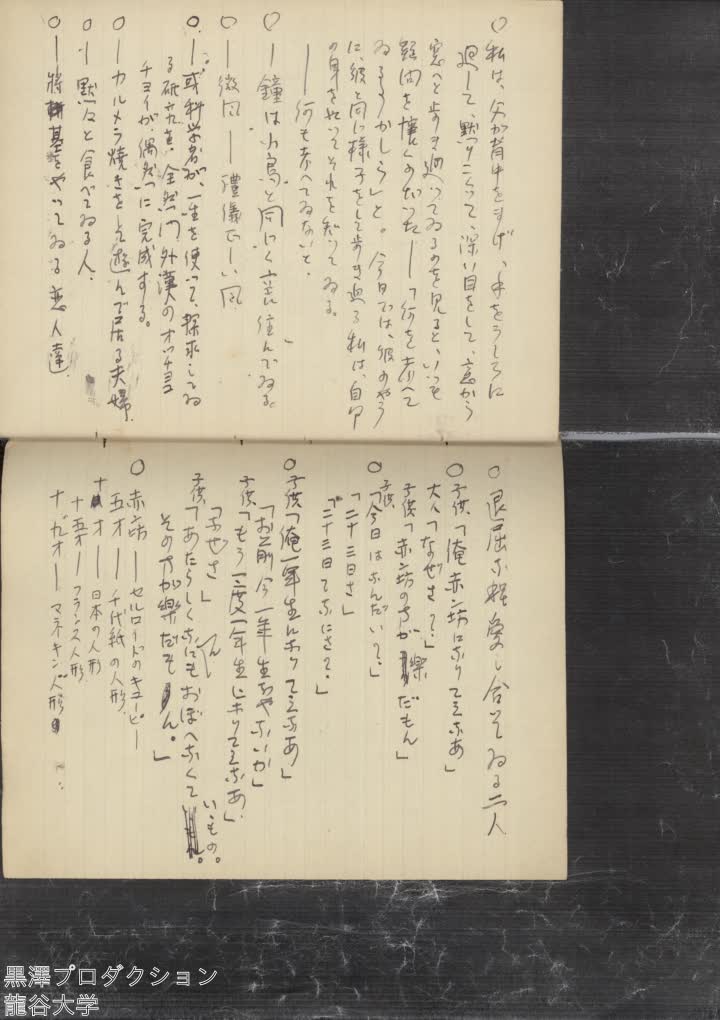 ○私は、父が背中をまげ、手をうしろに
廻して、黙りこくって、深い目をして、窓から
窓へと歩き廻ってゐるのを見ると、いつも
疑問を懐くのだった――「何を考へて
ゐるのかしら」と。今日では、彼のやう
に、彼と同じ様子をして歩き廻る私は、自分
の身を以ってそれを知ってゐる。
――何も考へてゐないと。
○―鐘は小鳥と同じく、裏に住んでゐる
○―微風――禮儀正しい風
○―或科学者が、一生を使って、探求してゐ
る研究を、全然門外漢のオッチョコ
チョイが、偶然に完成する。
○―カルメラ焼きをして遊んで居る夫婦.
○―黙々と食べてゐる人.
○―將棋をやってゐる恋人達.
○退屈な程愛し合ってゐる二人
○子供「俺赤ン坊になりてえなあ」
大人「なぜさ?」
子供「赤ン坊の方が樂だもん」
○子供「今日はなんだいて?」
「二十三日さ」
「二十三日てなにさて?」
○子供「俺一年生になりてえなあ」
「お前今一年生ぢやないか」
子供「もう一度一年生になりてえなあ」
「なぜさ」
子供「あたらしくなにもおぼへなくていいもの。
その方が樂だもん。」
○赤坊――セルロードのキューピー
五才――千代紙の人形
十才――日本の人形
十五才――フランス人形
十九才――マネキン人形
黒澤プロダクション
龍谷大学